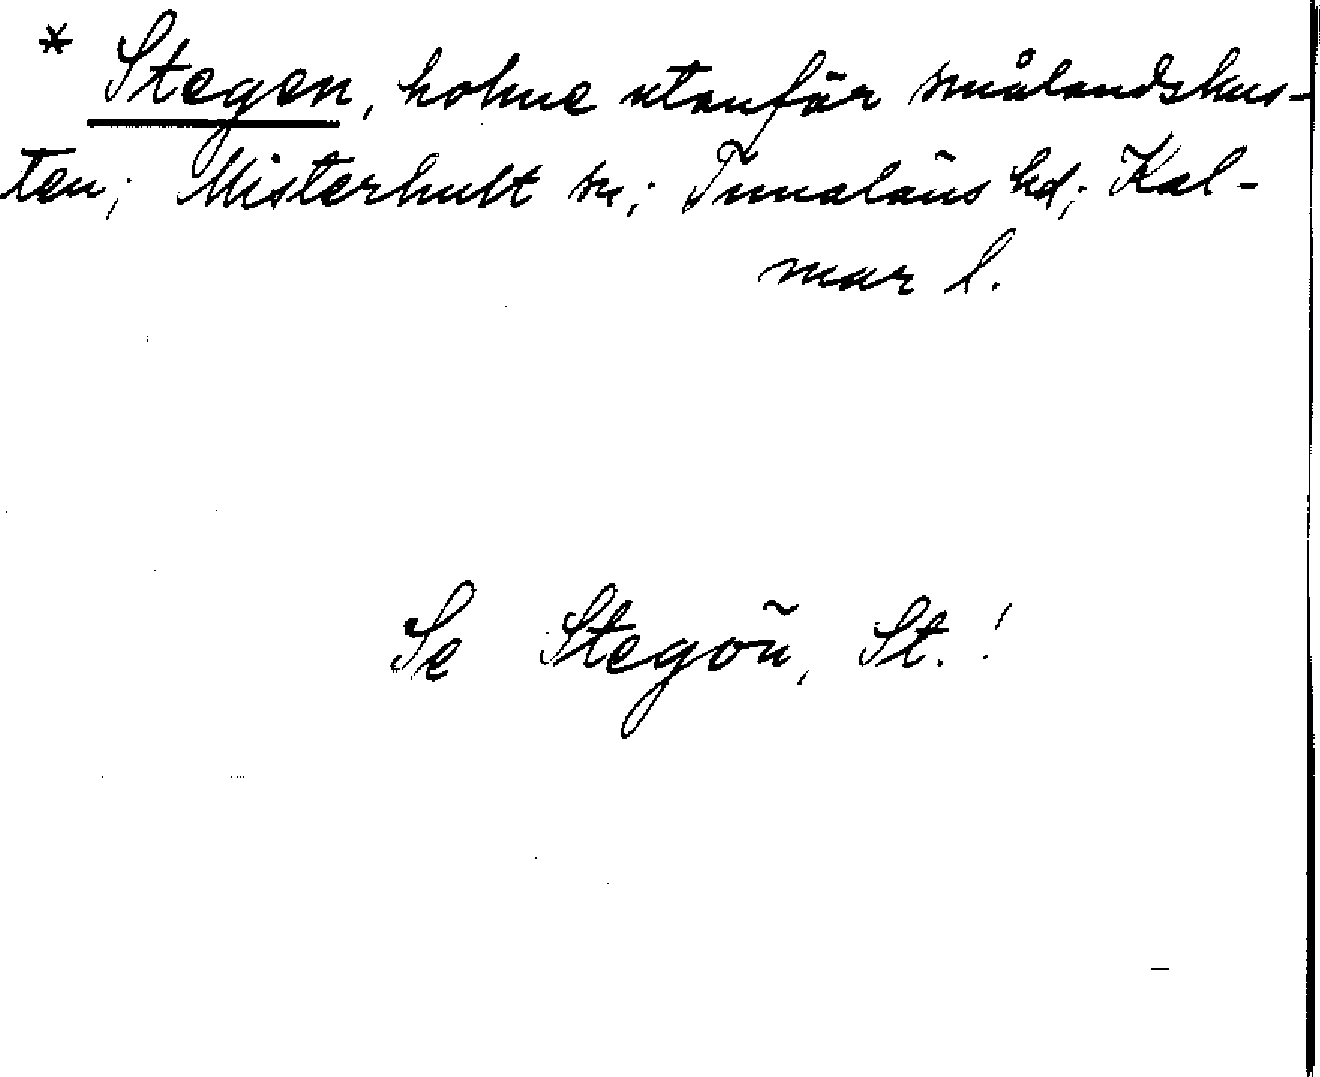 * Stegen, holme utanför smålandskus-
ten; Misterhult sn; Tunaläns hd; Kal-
mar l.
Se Stegön, St. !